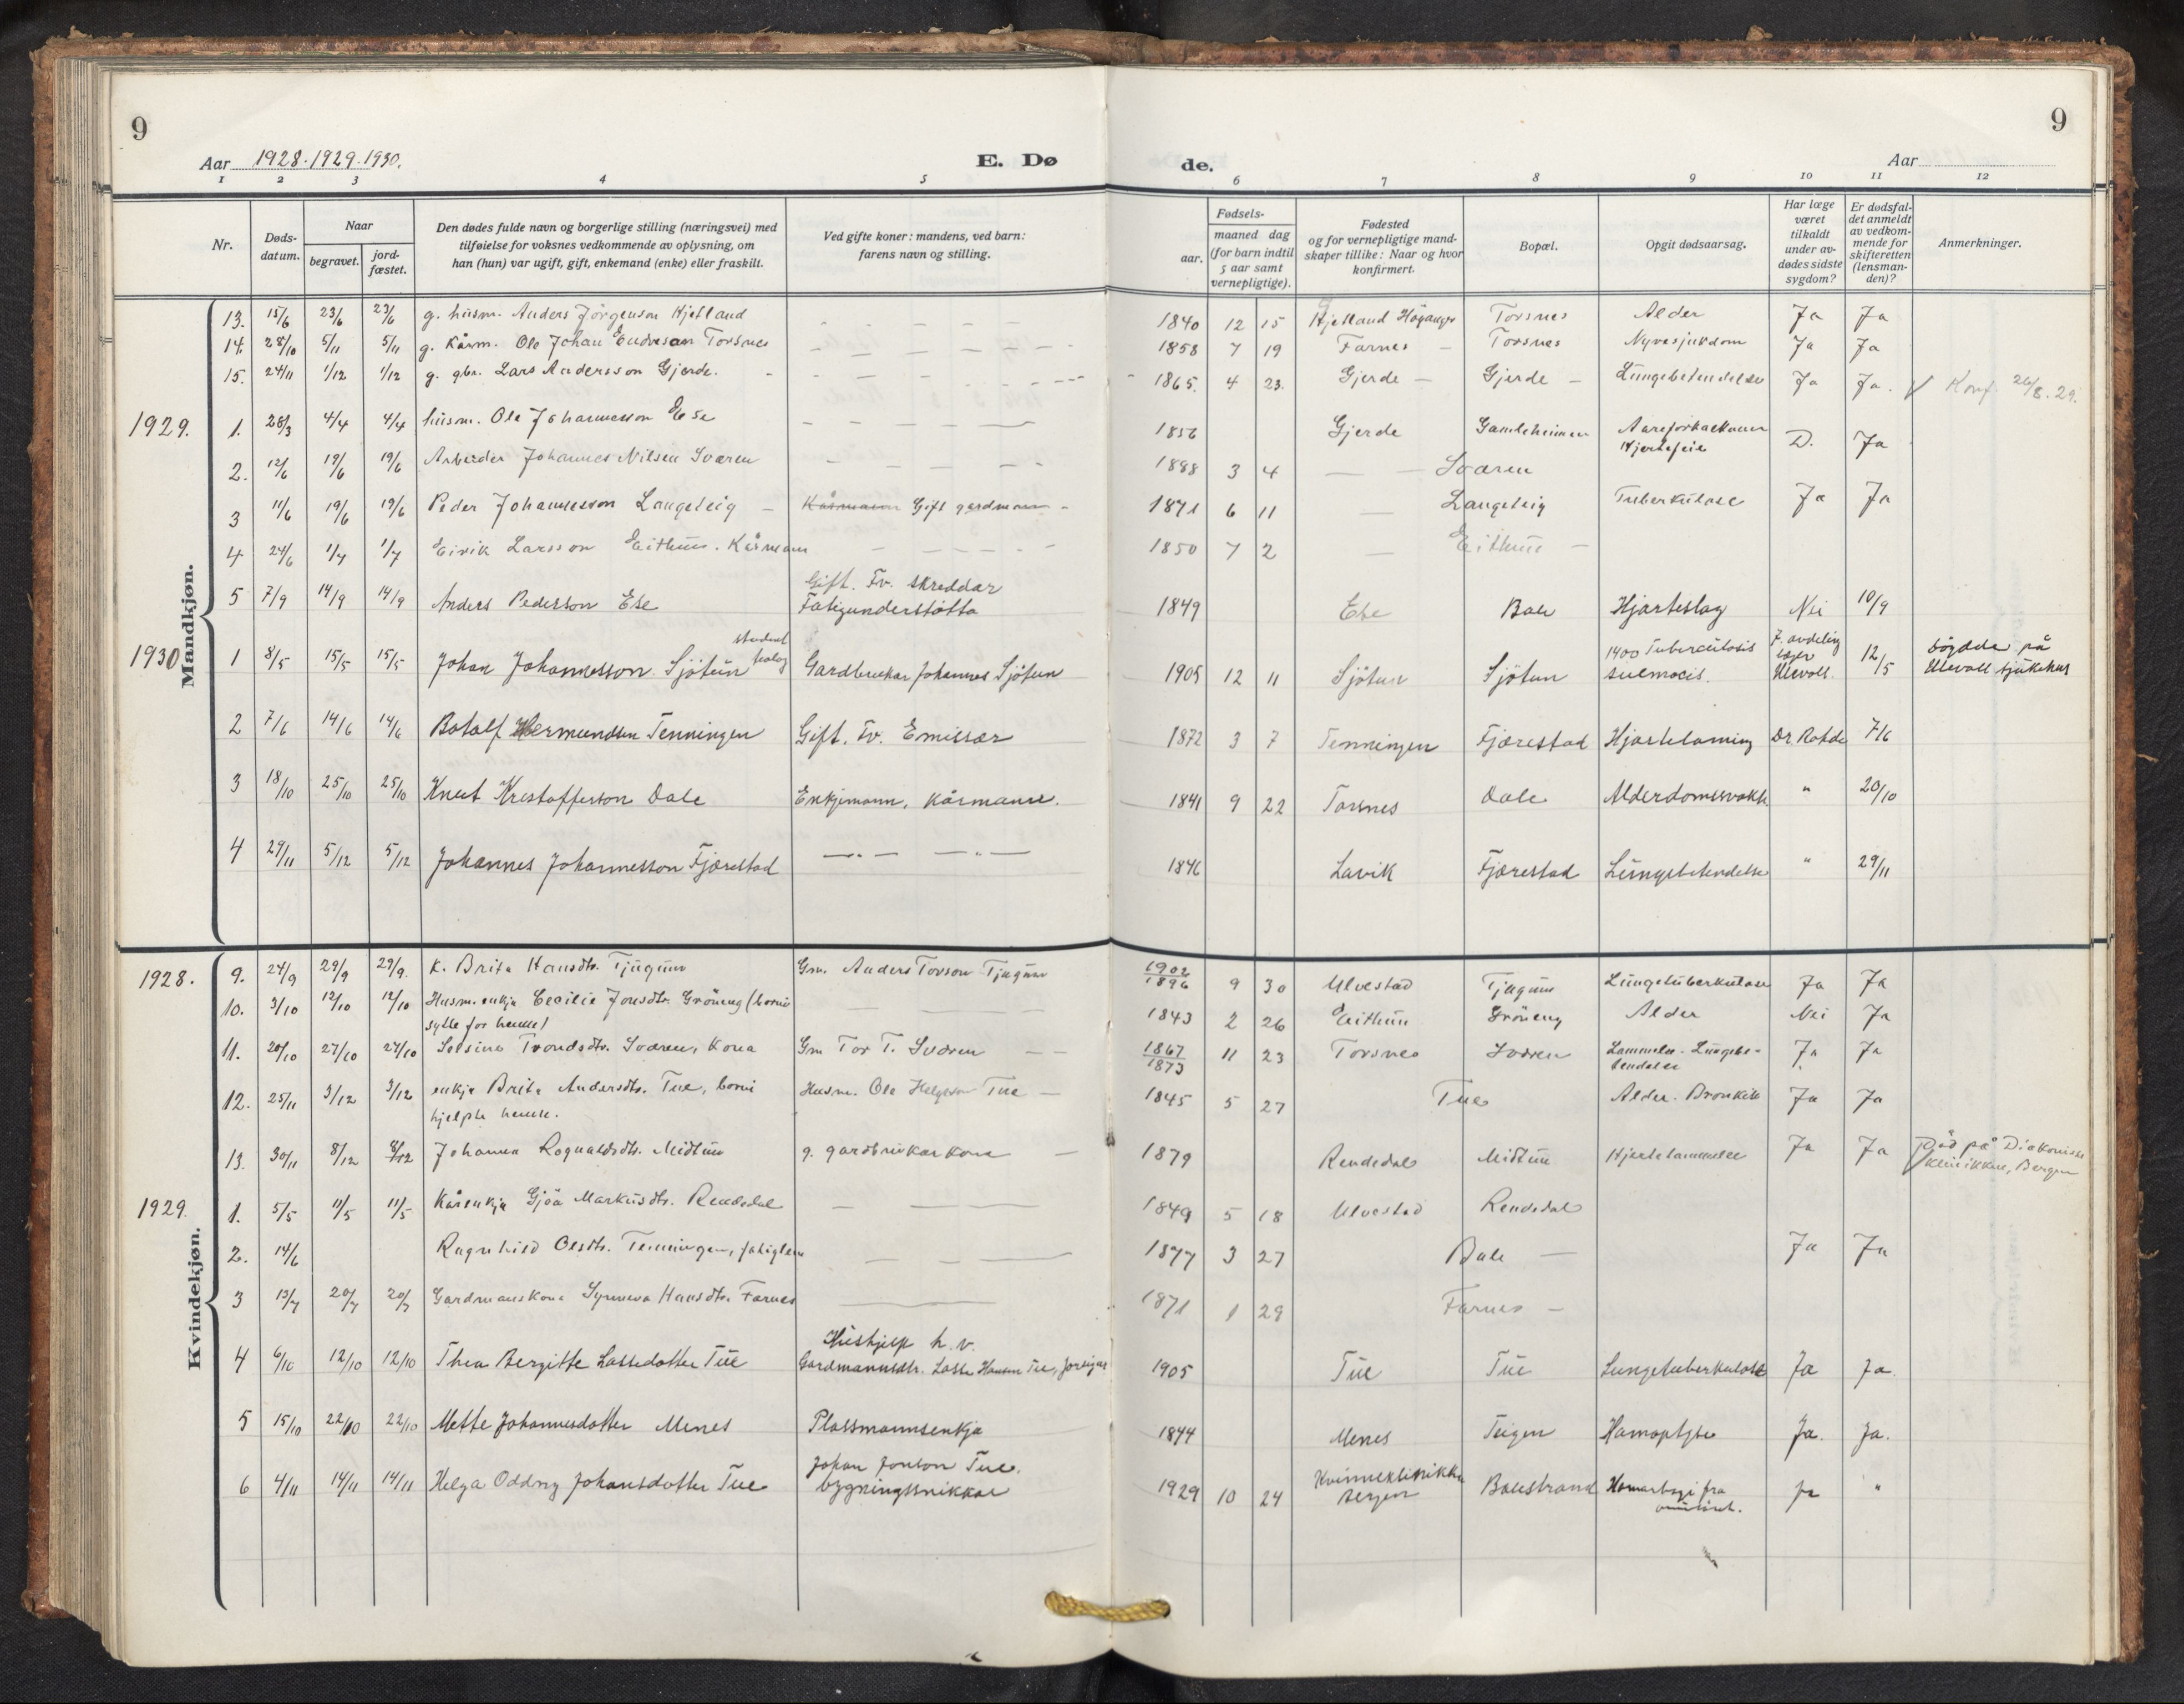 9
9
Aar 1928-1929-1930.
E. Dø
de.
Aar
1 2 3 4 5 6 7 8 9 10 11 12
Nr.
Døds-
datum.
Naar
begravet.
jord-
fæstet.
Den dødes fulde navn og borgerlige stilling (næringsvei) med
tilføielse for voksnes vedkommende av oplysning, om
han (hun) var ugift, gift, enkemand (enke) eller fraskilt.
Ved gifte koner: mandens, ved barn:
farens navn og stilling.
aar.
Fødsels-
maaned dag
(for barn indtil
5 aar samt
vernepligtige).
Fødested
og for vernepligtige mand-
skaper tillike: Naar og hvor
konfirmert.
Bopæl.
Opgit dødsaarsag.
Har læge
været
tilkaldt
under av-
dødes sidste
sygdom?
Er dødsfal-
det anmeldt
av vedkom-
mende for
skifteretten
(lensman-
den)?
Anmerkninger.
Mandkjøn.
13. 15/6 23/6 23/6 g. husm. Anders Jörgenson Kjetland 1840 12 15 Kjetland Höyanger Torsnes Alder Ja Ja
14. 28/10 5/11 5/11 g. Kårm. Ole Johan Endreson Torsnes 1858 7 19 Farnes Torsnes Nyresjukdom Ja Ja
15. 24/11 1/12 1/12 g. gbr. Lars Andersson Gjerde. 1865. 4 23. Gjerde Gjerde Lungebetendelse Ja Ja. Konf. 26/8.29.
1929. 1. 28/3 4/4 4/4 husm. Ole Johannesson Ese 1856 Gjerde Gamleheimen Aareforkalkning
Hjertefeil D. Ja
2. 12/6 19/6 19/6 Arbeider Johannes Nilsen Sværen 1888 3 4 Sværen
3 11/6 19/6 19/6 Peder Johannesson Langeteig Kårmann Gift gardmann 1871 6 11 Langeteig Tuberkulose Ja Ja
4 24/6 1/7 1/7 Eirik Larsson Eithun. Kårmann 1850 7 2 Eithun
5 7/9 14/9 14/9 Anders Pederson Ese Gift. Fv. skreddar
Fatigunderstøtta 1849 Ese Bale Hjarteslag Nei 10/9
1930 1 8/5 15/5 15/5 Johan Johannesson Sjötun student
teolog Gardbrukar Johannes Sjötun 1905 12 11 Sjötun Sjötun 1400 Tuberculosis
pulmocis. 7. avdeling
Ulevoll. 12/5 Døydde på
Ulevoll sjukehus
2 7/6 14/6 14/6 Botolf Hermundsen Tenningen Gift. Fv. Emissær 1872 3 7 Tenningen Fjærestad Hjartelaming Dr Rohde 7/6
3 18/10 25/10 25/10 Knut Kristofferson Dale Enkjemann, Kårmann. 1841 9 22 Torsnes Dale Alderdomssvakh. " 20/10
4 29/11 5/12 5/12 Johannes Johannesson Fjærestad 1846 Lavik Fjærestad Lungebetendelse " 29/11
Kvindekjøn.
1928. 9. 24/9 29/9 29/9. K. Brita Hansdtr. Tjugum Gm. Anders Torson Tjugum 1902
1896 9 30 Ulvestad Tjugum Lungetuberkulose Ja Ja
10. 3/10 12/10 12/10 Husm. enkja Cecilie Jonsdtr. Gröneng (borni
sytte for henne) 1843 2 26 Eithun Gröneng Alder Nei Ja
11. 20/10 27/10 27/10 Selsine Trondsdtr. Sværen, Kona Gm Tor T. Sværen 1867
1873 11 23 Torsnes Sværen Lammelse - Lungebe-
tendelse Ja Ja
12. 25/11 3/12 3/12 enkja Brita Andersdtr. Tue, borni
hjelpte henne. Husm. Ole Helgeson Tue 1845 5 27 Tue Alder. Bronkitt Ja Ja
13. 30/11 8/12 8/12 Johanna Rognaldsdtr. Midtun g. gardbrukarkone 1879 Rendedal Midtun Hjertelammelse Ja Ja Död på Diakonisse
klinikken, Bergen
1929. 1. 5/5 11/5 11/5 Kårenkja Gjöa Markusdtr. Rendedal 1849 5 18 Ulvestad Rendedal
2. 14/6 Ragnhild Olsdtr. Tenningen, fatiglem 1877 3 27 Bale Ja Ja
3 13/7 20/7 20/7 Gardmanskona Synneva Hansdtr. Farnes 1871 1 29 Farnes
4 6/10 12/10 12/10 Thea Bergitte Lassedotter Tue Hushjelp h. v.
Gardmannsdtr. Lasse Hansen Tue, 1905 Tue Tue Lungetuberkulose Ja Ja.
5 15/10 22/10 22/10 Mette Johannesdotter Menes Plassmannsenkja 1844 Menes Teigen Hæmoptyse Ja. Ja.
6 4/11 14/11 14/11 Helga Oddny Johansdotter Tue Johan Jonson Tue.
bygningssnikkar 1929 10 24 Kvinneklinikken
Bergen Balestrand fra ja "